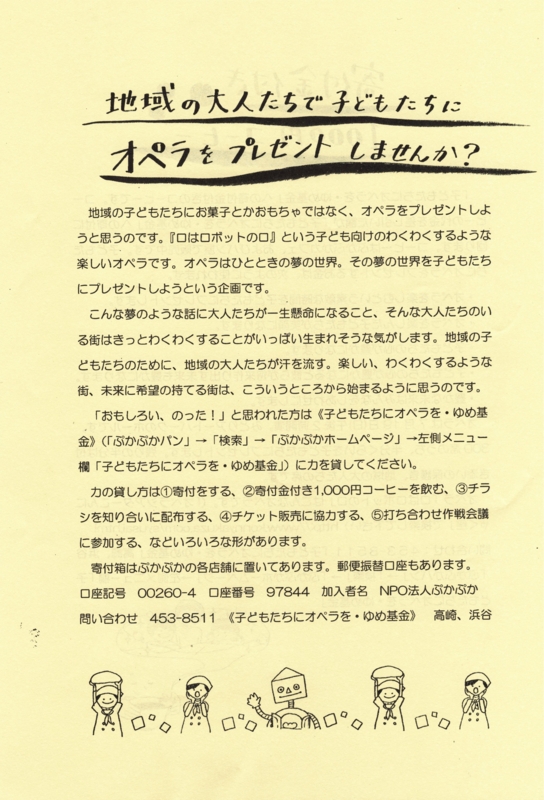 地域の大人たちで子どもたちに
オペラをプレゼントしませんか?
地域の子どもたちにお菓子とかおもちゃではなく、オペラをプレゼントしよ
うと思うのです。『ロはロボットのロ』という子ども向けのわくわくするような
楽しいオペラです。オペラはひとときの夢の世界。その夢の世界を子どもたち
にプレゼントしようという企画です。
こんな夢のような話に大人たちが一生懸命になること、そんな大人たちのい
る街はきっとわくわくすることがいっぱい生まれそうな気がします。地域の子
どもたちのために、地域の大人たちが汗を流す。楽しい、わくわくするような
街、未来に希望の持てる街は、こういうところから始まるように思うのです。
「おもしろい、のった!」と思われた方は《子どもたちにオペラを・ゆめ基
金》(「ぷかぷかパン」→「検索」→「ぷかぷかホームページ」→左側メニュー
欄「子どもたちにオペラを・ゆめ基金」)に力を貸してください。
力の貸し方は①寄付をする、②寄付金付き1,000円コーヒーを飲む、③チラ
シを知り合いに配布する、④チケット販売に協力する、⑤打ち合わせ作戦会議
に参加する、などいろいろな形があります。
寄付箱はぷかぷかの各店舗に置いてあります。郵便振替口座もあります。
口座記号 00260-4 口座番号 97844 加入者名 NPO法人ぷかぷか
問い合わせ 453-8511 《子どもたちにオペラを・ゆめ基金》 高崎、浜谷